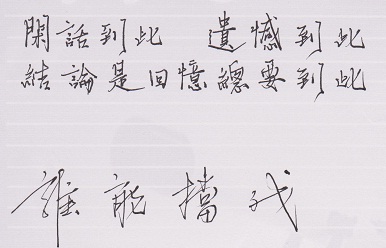 閑話到此 遺憾到此
結論是回憶總要到此
誰能擋我